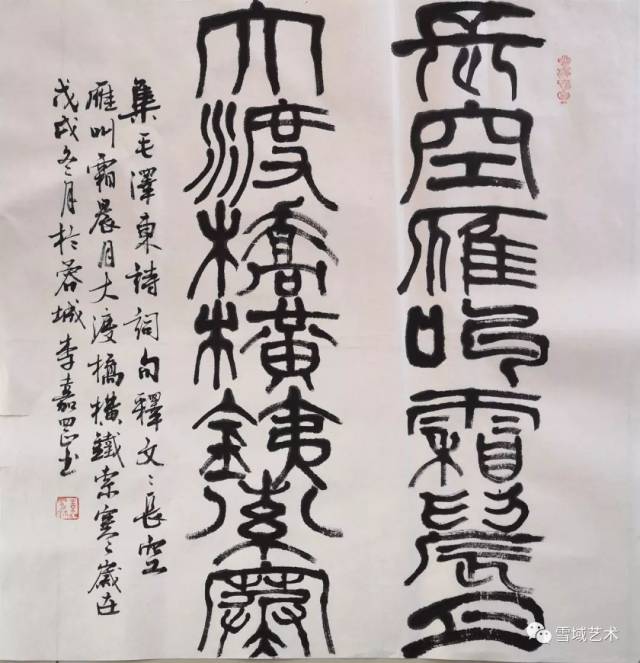 長空雁叫霜晨月
大渡橋橫銕索寒
集毛澤東詩詞句釋文：長空
雁叫霜晨月大渡橋橫鐵索寒：歲在
戊戌冬月於蓉城李嘉书
雪域艺术